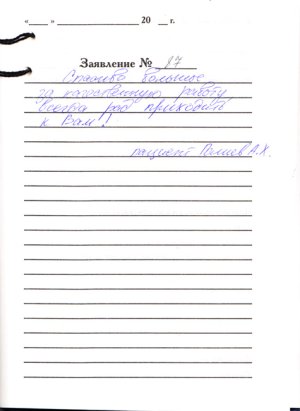 «____» ____________________ 20 __ г.
Заявление № 87
Спасибо большое
за качественную работу
Всегда рад приходить
к Вам!
пациент А.Х.